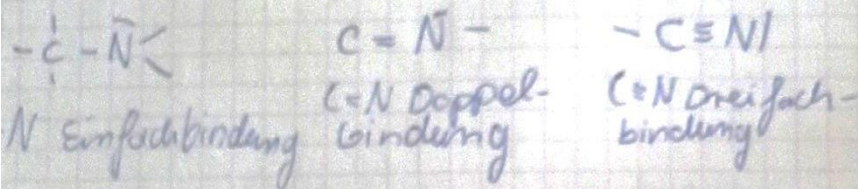 -C-N<
C=N-
-C≡N|
N Einfachbindung
C=N Doppel-
bindung
C≡N Dreifach-
bindung